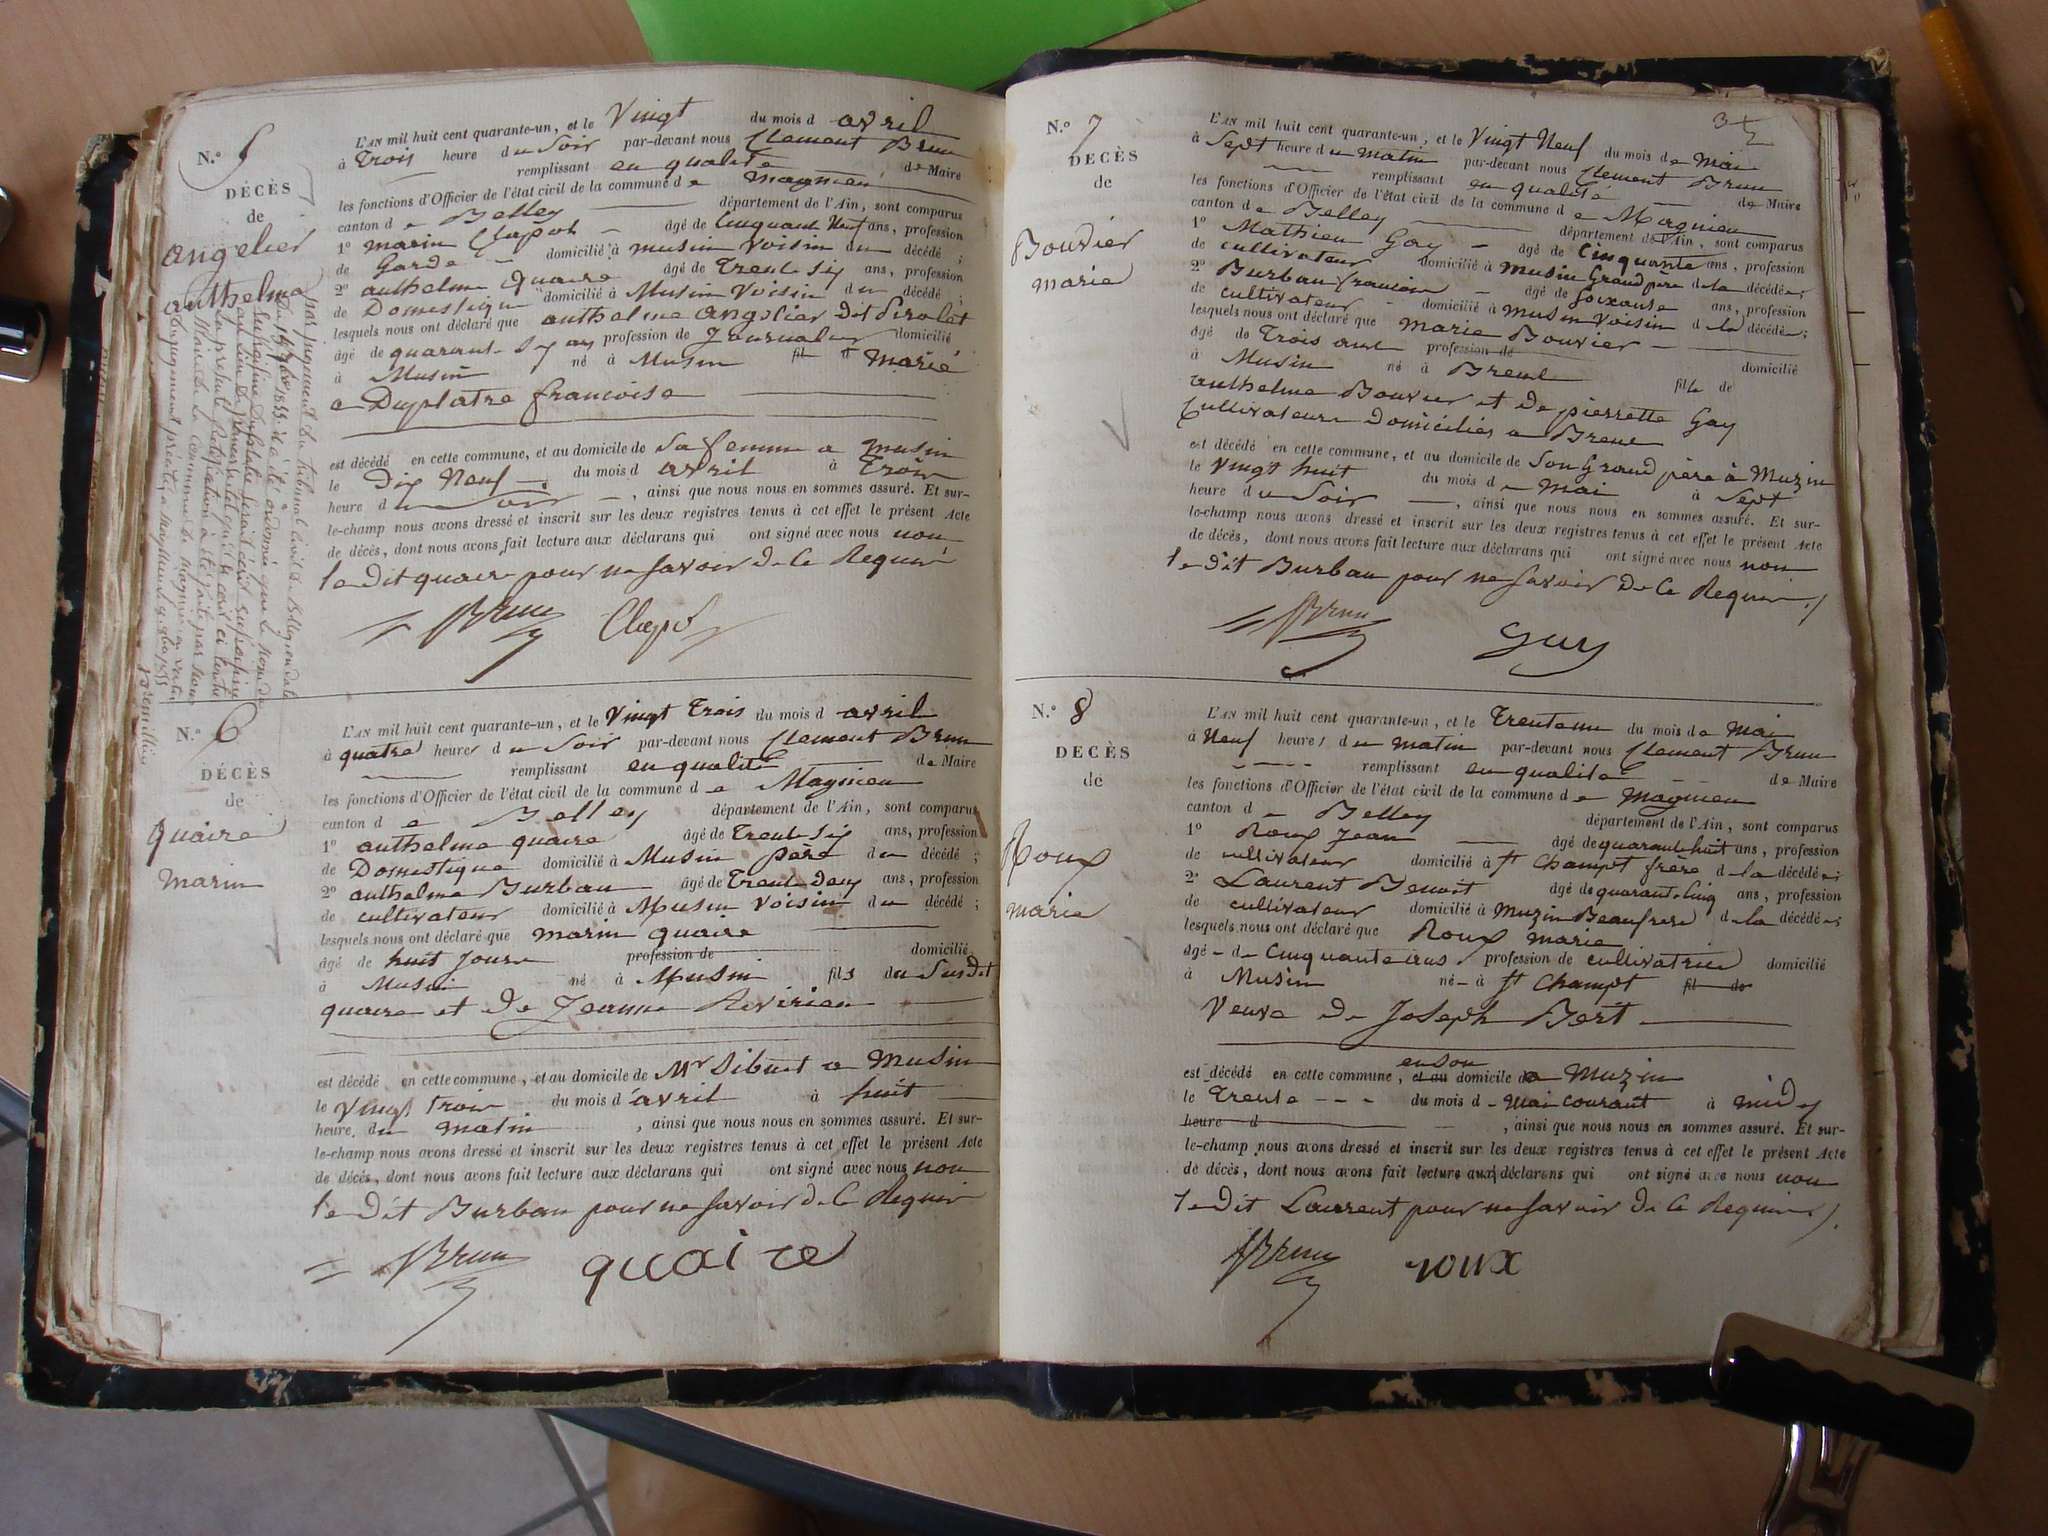 N.º 5
DÉCÈS
de
angelier
anthelme
L'AN mil huit cent quarante-un, et le Vingt du mois d avril
à Trois heure du Soir par-devant nous Clement Brun
remplissant en qualité de Maire
les fonctions d'Officier de l'état civil de la commune de magnieu
canton de Belley département de l'Ain, sont comparus
1º marin Clapot âgé de Cinquant Neuf ans, profession
de Garde domicilié à musin Voisin du décédé;
2º anthelme Quaire âgé de Trent Six ans, profession
de Domestique domicilié à Musin Voisin du décédé;
lesquels nous ont déclaré que anthelme angelier Dit Pirolat
âgé de quarant-Six ans profession de Journalier domicilié
à Musin né à Musin fils Marié
a Duplatre francoise
est décédé en cette commune, et au domicile de Sa femme a musin
le Dix Neuf du mois d avril à Trois
heure du Soir, ainsi que nous nous en sommes assuré. Et sur-
le-champ nous avons dressé et inscrit sur les deux registres tenus à cet effet le présent Acte
de décès, dont nous avons fait lecture aux déclarans qui ont signé avec nous non
le Dit quaire pour ne Savoir De Ce Requi
Brun Clapot
par jugement du tribunal civil de Belley en date
N.º 6
DÉCÈS
de
quaire
marin
L'AN mil huit cent quarante-un, et le Vingt Trois du mois d avril
à quatre heures du Soir par-devant nous Clement Brun
remplissant en qualité de Maire
les fonctions d'Officier de l'état civil de la commune de Magnieu
canton de Belley département de l'Ain, sont comparus
1º anthelme quaire âgé de Trent-Six ans, profession
de Domestique domicilié à Musin père du décédé;
2º anthelme Burban âgé de Trent-Deux ans, profession
de cultivateur domicilié à Musin Voisin du décédé;
lesquels nous ont déclaré que marin quaire
âgé de huit Jours profession de domicilié
à Musin né à Musin fils du Susdit
quaire et de Jeanne
est décédé en cette commune, et au domicile de Mr Sibuet a Musin
le Vingt trois du mois d'avril à huit
heure du matin, ainsi que nous nous en sommes assuré. Et sur-
le-champ nous avons dressé et inscrit sur les deux registres tenus à cet effet le présent Acte
de décès, dont nous avons fait lecture aux déclarans qui ont signé avec nous non
le Dit Burban pour ne Savoir de Ce Requi
Brun quaire
3
N.º 7
DÉCÈS
de
Bouvier
marie
L'AN mil huit cent quarante-un, et le Vingt Neuf du mois de Mai
à Sept heure du matin par-devant nous Clement Brun
remplissant en qualité de Maire
les fonctions d'Officier de l'état civil de la commune de Magnieu
canton de Belley département de l'Ain, sont comparus
1º Mathieu Gay âgé de Cinquante ans, profession
de cultivateur domicilié à musin Grand père de la décédée;
2º Burban francois âgé de Soixante ans, profession
de cultivateur domicilié à musin Voisin de la décédée;
lesquels nous ont déclaré que Marie Bouvier
âgé de Trois ans profession de domicilié
à Musin né à Brens fille de
anthelme Bouvier et De pierrette Gay
Cultivateurs Domiciliés a Brens
est décédé en cette commune, et au domicile de Son Grand père à Muzin
le Vingt huit du mois de Mai à Sept
heure du Soir, ainsi que nous nous en sommes assuré. Et sur-
le-champ nous avons dressé et inscrit sur les deux registres tenus à cet effet le présent Acte
de décès, dont nous avons fait lecture aux déclarans qui ont signé avec nous non
le Dit Burban pour ne Savoir De Ce Requi
Brun Gay
N.º 8
DÉCÈS
de
Roux
marie
L'AN mil huit cent quarante-un, et le Trente un du mois de Mai
à Neuf heures du matin par-devant nous Clement Brun
remplissant en qualité de Maire
les fonctions d'Officier de l'état civil de la commune de magnieu
canton de Belley département de l'Ain, sont comparus
1º Roux Jean âgé de quarante huit ans, profession
de cultivateur domicilié à St Champt frère de la décédée;
2º Laurent Benoit âgé de quarant-Cinq ans, profession
de cultivateur domicilié à Muzin Beaufrere de la décédée;
lesquels nous ont déclaré que Roux marie
âgé de Cinquante ans profession de cultivatrice domicilié
à Musin né à St Champt fil de
Veuve De Joseph Bert
est décédé en cette commune, en Son et au domicile de a Muzin
le Trente du mois de Mai courant à midy
heure d, ainsi que nous nous en sommes assuré. Et sur-
le-champ nous avons dressé et inscrit sur les deux registres tenus à cet effet le présent Acte
de décès, dont nous avons fait lecture aux déclarans qui ont signé avec nous non
le Dit Laurent pour ne Savoir De Ce Requi
Brun roux